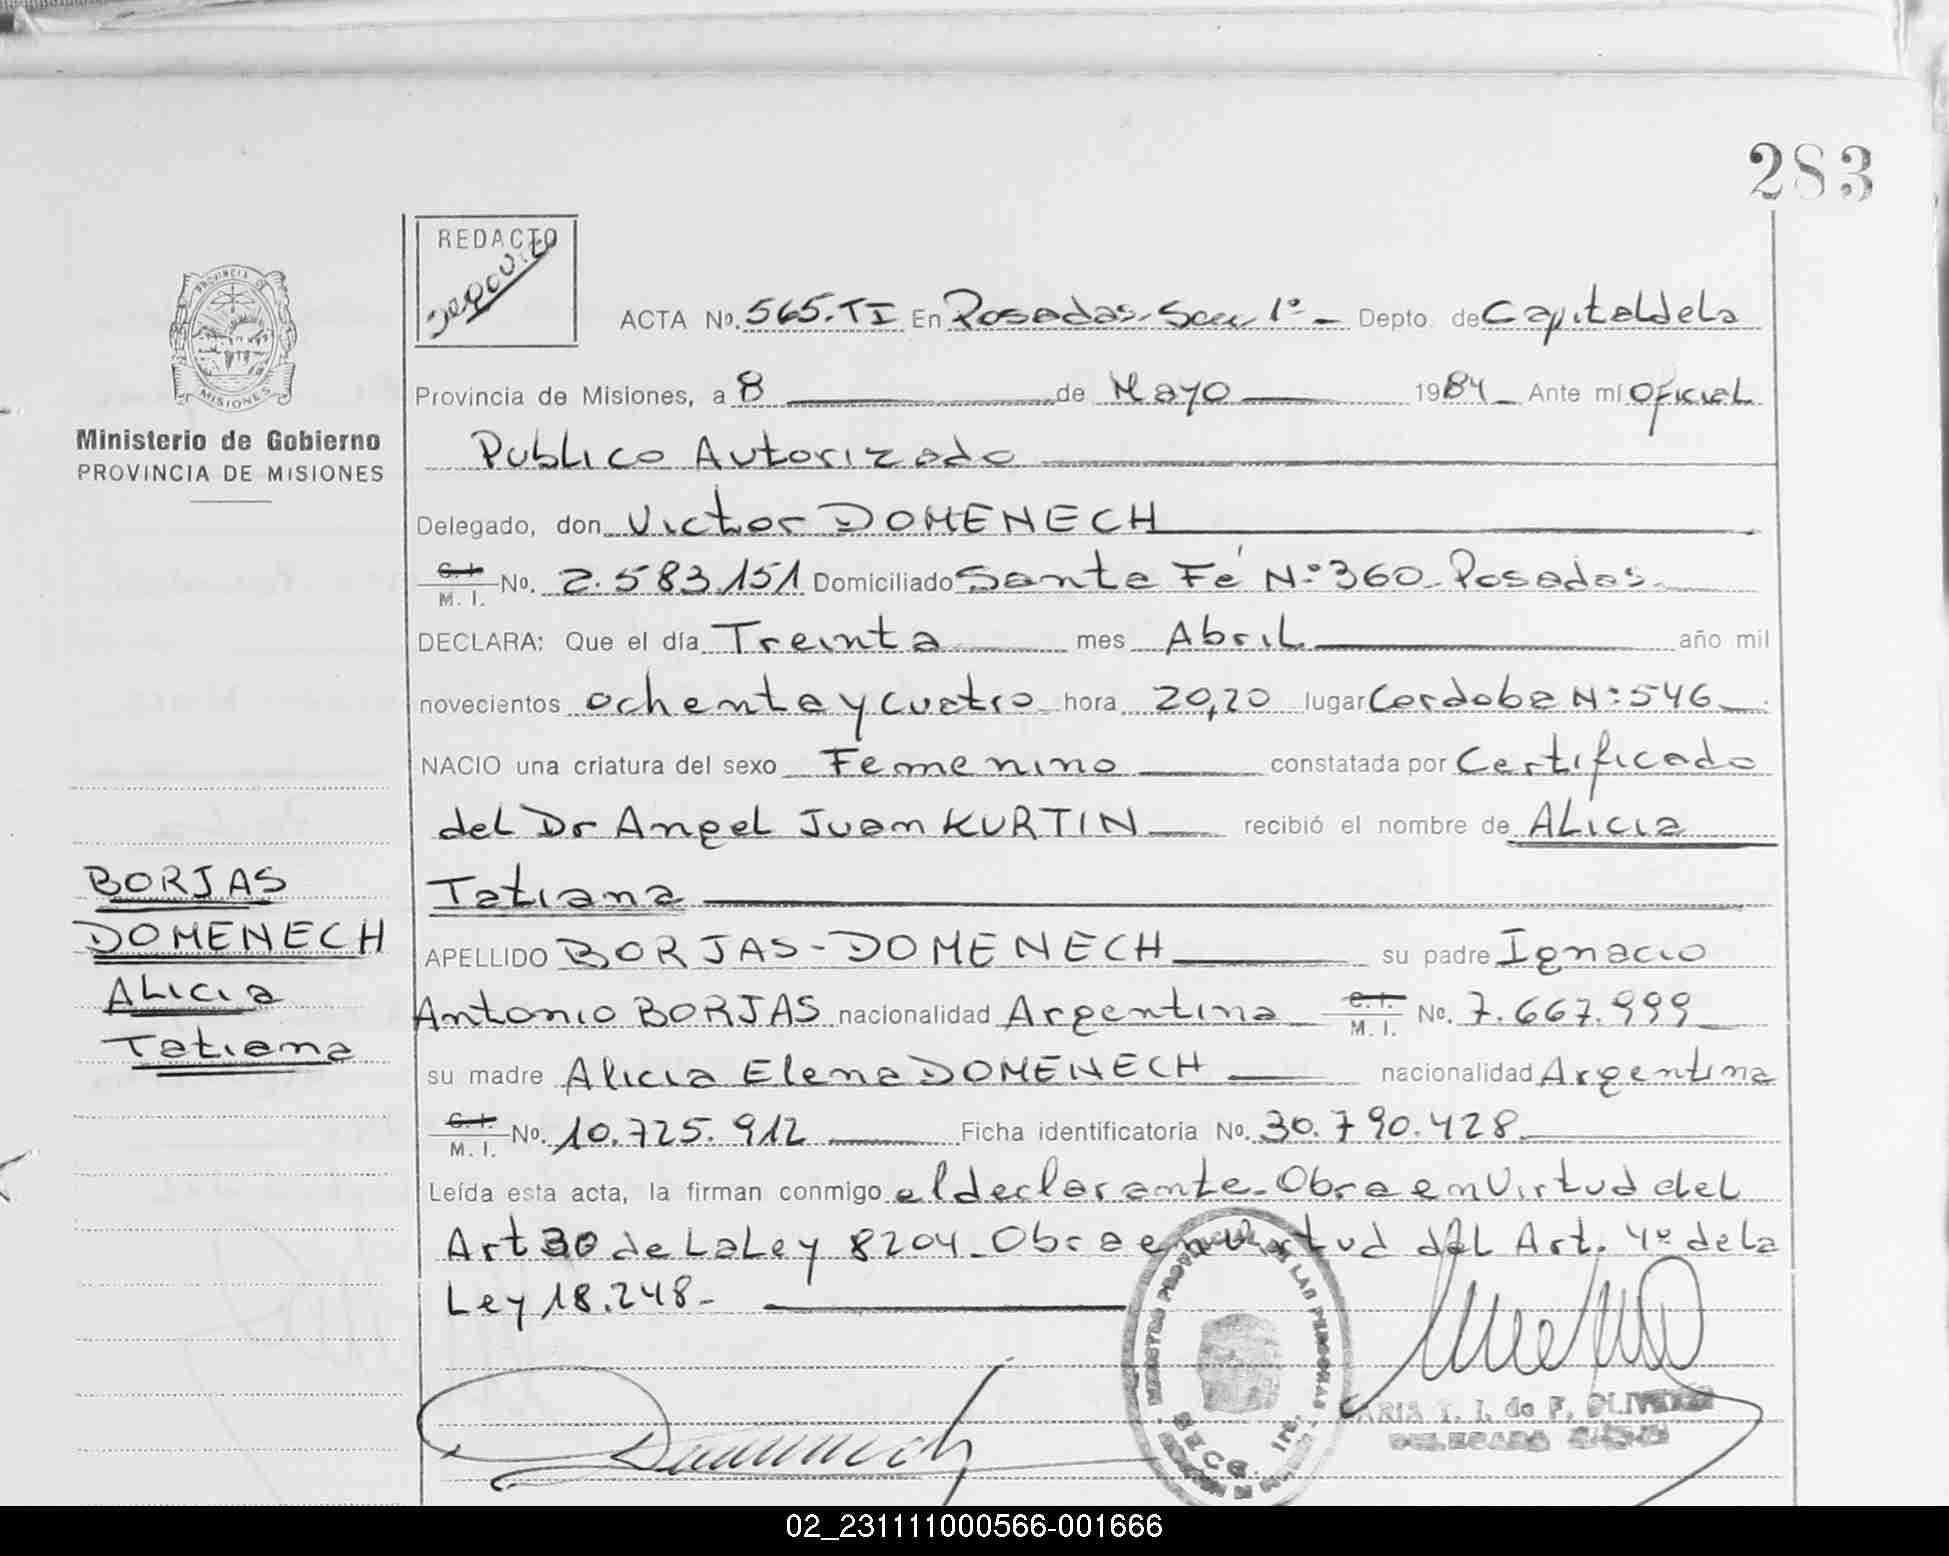 283
REDACTO
PROVINCIA DE
MISIONES
Ministerio de Gobierno
PROVINCIA DE MISIONES
ACTA No. 565.TI En Posadas. Secc 1º - Depto de Capital de la
Provincia de Misiones, a 8 de Mayo 1984 Ante mí Oficial
Publico Autorizado
Delegado, don Victor DOMENECH
C. I.
M. I. No. 2.583.151 Domiciliado Santa Fé Nº 360 - Posadas.
DECLARA: Que el día Treinta mes Abril año mil
novecientos ochenta y cuatro hora 20,20 lugar Cordoba Nº 546
NACIO una criatura del sexo Femenino constatada por Certificado
del Dr Angel Juan KURTIN recibió el nombre de ALicia
Tatiana
APELLIDO BORJAS-DOMENECH su padre Ignacio
Antonio BORJAS nacionalidad Argentina C. I. M. I. No. 7.667.999
su madre Alicia Elena DOMENECH nacionalidad Argentina
C. I.
M. I. No. 10.725.912 Ficha identificatoria No. 30.790.428.
Leída esta acta, la firman conmigo el declarante. Obra en Virtud del
Art 30 de La Ley 8204. Obra en virtud del Art. 4º de la
Ley 18.248-
BORJAS
DOMENECH
ALicia
Tatiana
REGISTRO PROVINCIAL DE LAS PERSONAS
SECC. 1ra.
MARIA T. I. de F. OLIVEIRA
02_231111000566-001666